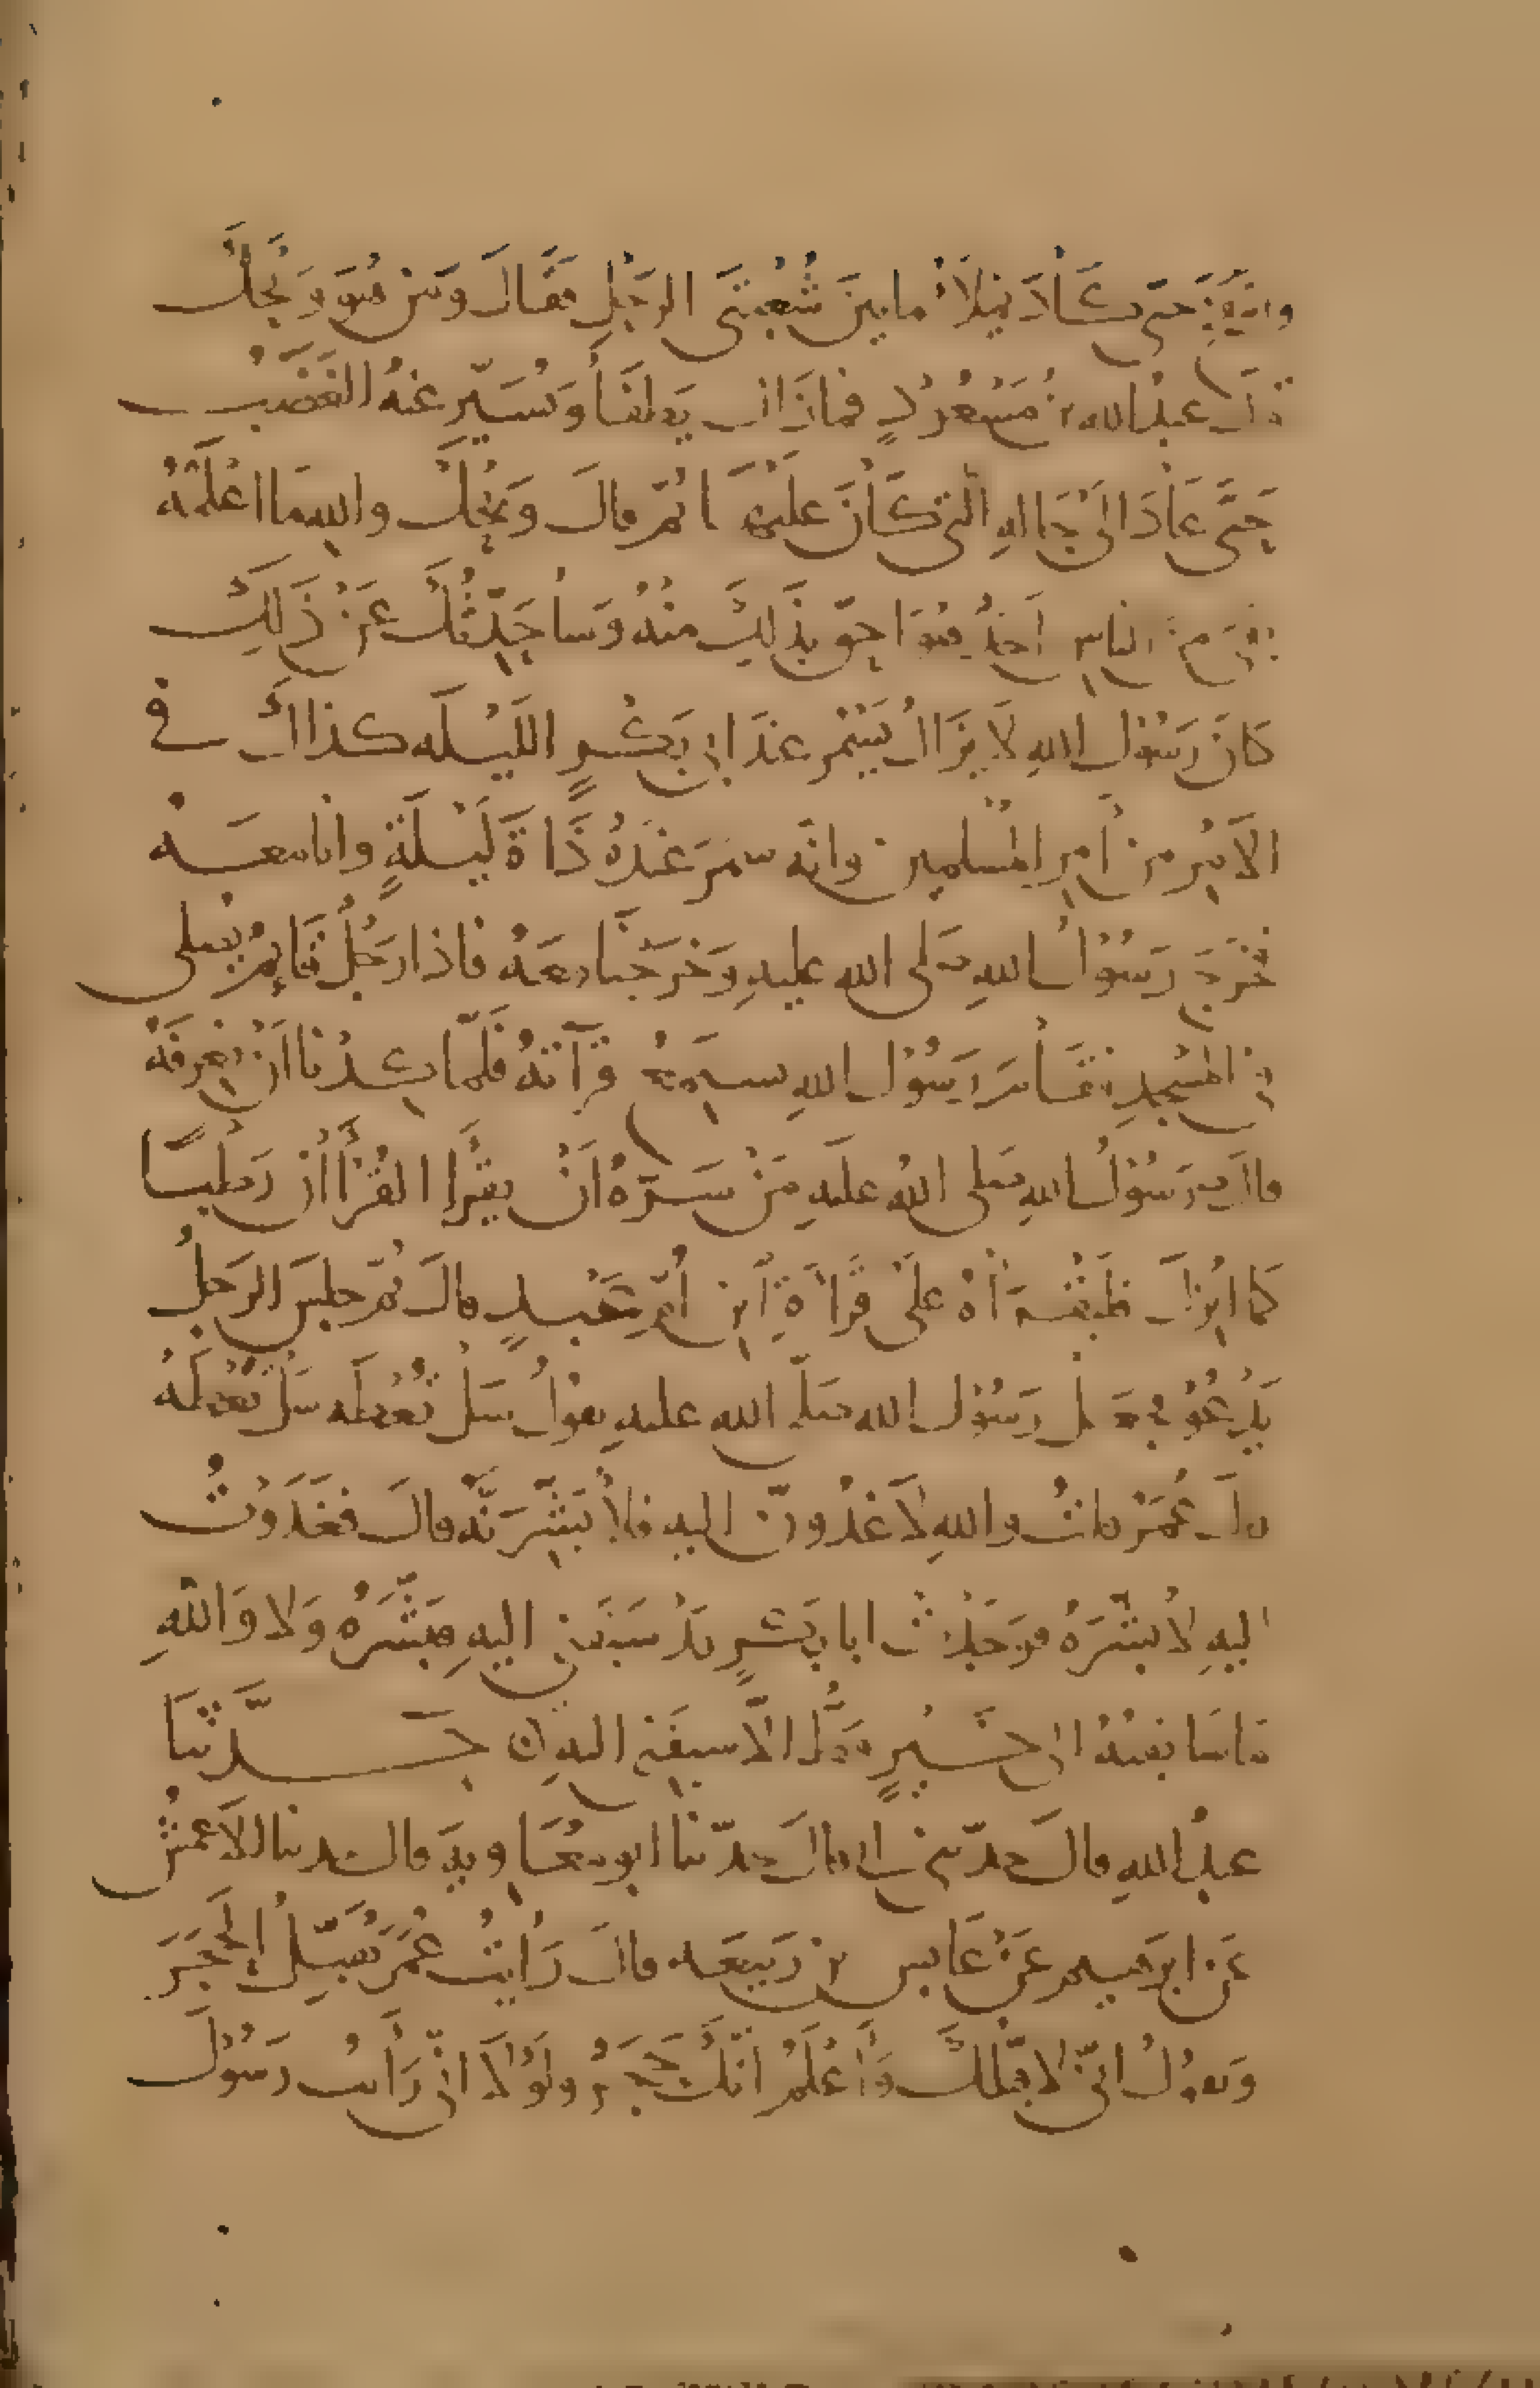 وانتفخ حتى كَادَ يملأ ما بينَ شُعْبتَى الرَّجُلِ فقَالَ وَمَن هُوَ وَيْحَكَ
قال عبدُ الله بنُ مَسْعُودٍ فما زَالَ يَطفَأُ وَيُسَيَّر عنهُ الغَضَبُ
حَتَّى عَادَ الَى حَالهِ التي كَانَ عليْهَا ثمّ قالَ وَيْحَكَ والله ما اعْلَمُهُ
بقىَ منَ الناسِ اَحَدٌ هُوَ احقّ بذَلِكَ منهُ وَسأُحَدِّثُكَ عَنْ ذَلِكَ
كانَ رَسُوْل اللهِ لَا يزَالُ يَسْمُر عندَ ابى بَكْرٍ اللَيْلَه كذاك في
الاَمْرِ من أمرِ المُسلمين وانّه سَمَرَ عندَهُ ذَاةَ لَيْلَةٍ وانا معَه
فخرَجَ رَسُوْلُ اللهِ صَلى الله عليهِ وَخرَجْنَا معَهُ فاذا رَجُلٌ قَايِمٌ يُصلى
في المسْجدِ فقَامَ رَسُوْل اللهِ يسمَعُ قرآتهُ فلَمّا كِدْنا انْ نعْرِفَهُ
قالَ رَسُوْلُ اللهِ صَلى اللهُ عليهِ مَنْ سَرّهُ اَنْ يقْرَأ القُرْأانَ رَطبًا
كما انُزلَ فليَقْرَأهُ علَى قرَاأةِ ابن اُمِّ عَبْدٍ قالَ ثم جلسَ الرَجلُ
يَدْعُوْ فجعَلَ رَسُوْل الله صَلّى الله عليهِ يقوْلُ سَلْ تُعْطَه سَلْ تُعْطَهُ
قالَ عُمَرُ قلتُ واللهِ لاَغدُونّ اليه فلأُبَشّرَنّهُ قالَ فغَدَوْتُ
اليهِ لأُبشّرَهُ فوَجَدْتُ ابا بَكْرٍ قدْ سَبَقَني اليهِ فبَشَّرَهُ وَلا وَاللهِ
مَا سَابقتُهُ الى خَيْرٍ قطُّ الّا سبقَني اليهِ حَدَّثنَا
عبدُ اللهِ قالَ حدّثني ابى قالَ حدّثنا ابو معَاويهَ قال حدثنا الاَعمشُ
عَن ابرَهيم عَنْ عَابس بن رَبيعَه قالَ رَأيتُ عُمَرَ يُقبّلُ الحَجَرَ
وَيقوْلُ انّى لاقبّلكَ وَأعْلَمُ انّكَ حَجَرٌ ولَوْلاَ انّى رَأيتُ رَسُوْلَ